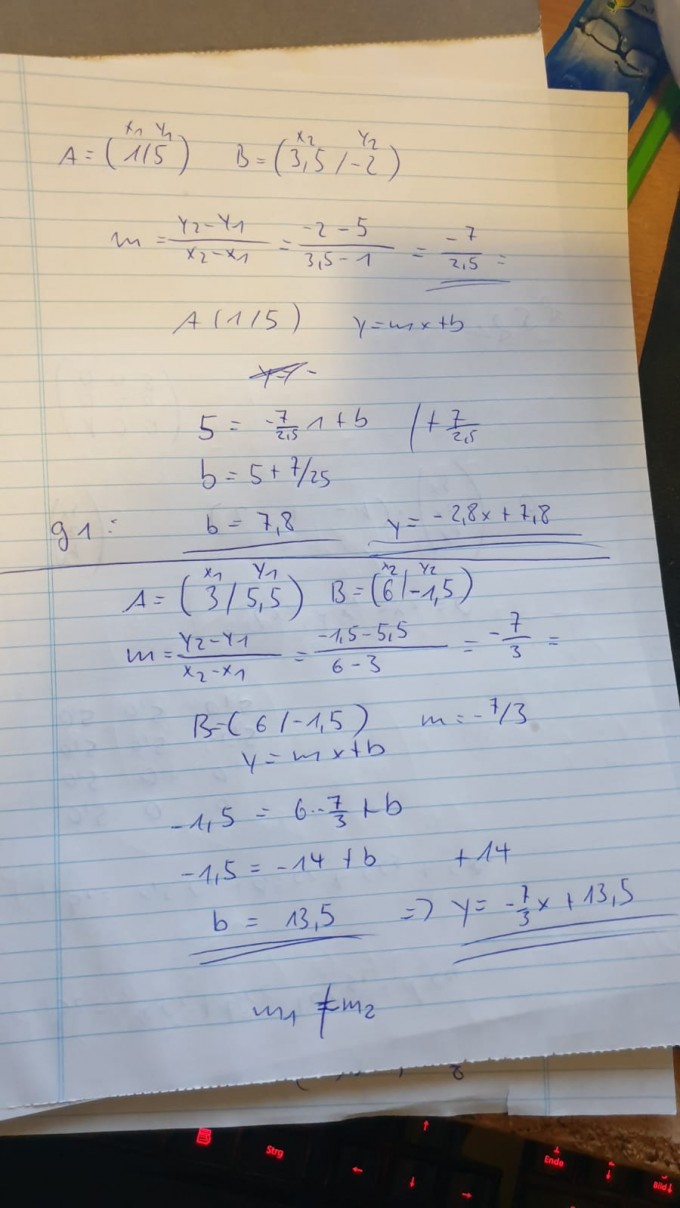 x1 y1 x2 y2
A = (1/5) B = (3,5/-2)
m = y2-y1/x2-x1 = -2-5/3,5-1 = -7/2,5 =
A (1/5) y=mx+b
5 = -7/2,5 1 + b /+ 7/2,5
b = 5 + 7/25
g1: b = 7,8 y = -2,8x + 7,8
x1 y1 x2 y2
A = (3/5,5) B = (6/-1,5)
m = y2-y1/x2-x1 = -1,5-5,5/6-3 = -7/3 =
B=(6/-1,5) m = -7/3
y = mx+b
-1,5 = 6·-7/3 + b
-1,5 = -14 + b +14
b = 13,5 => y = -7/3x + 13,5
m1 ≠ m2
Strg
Ende
Bild↓